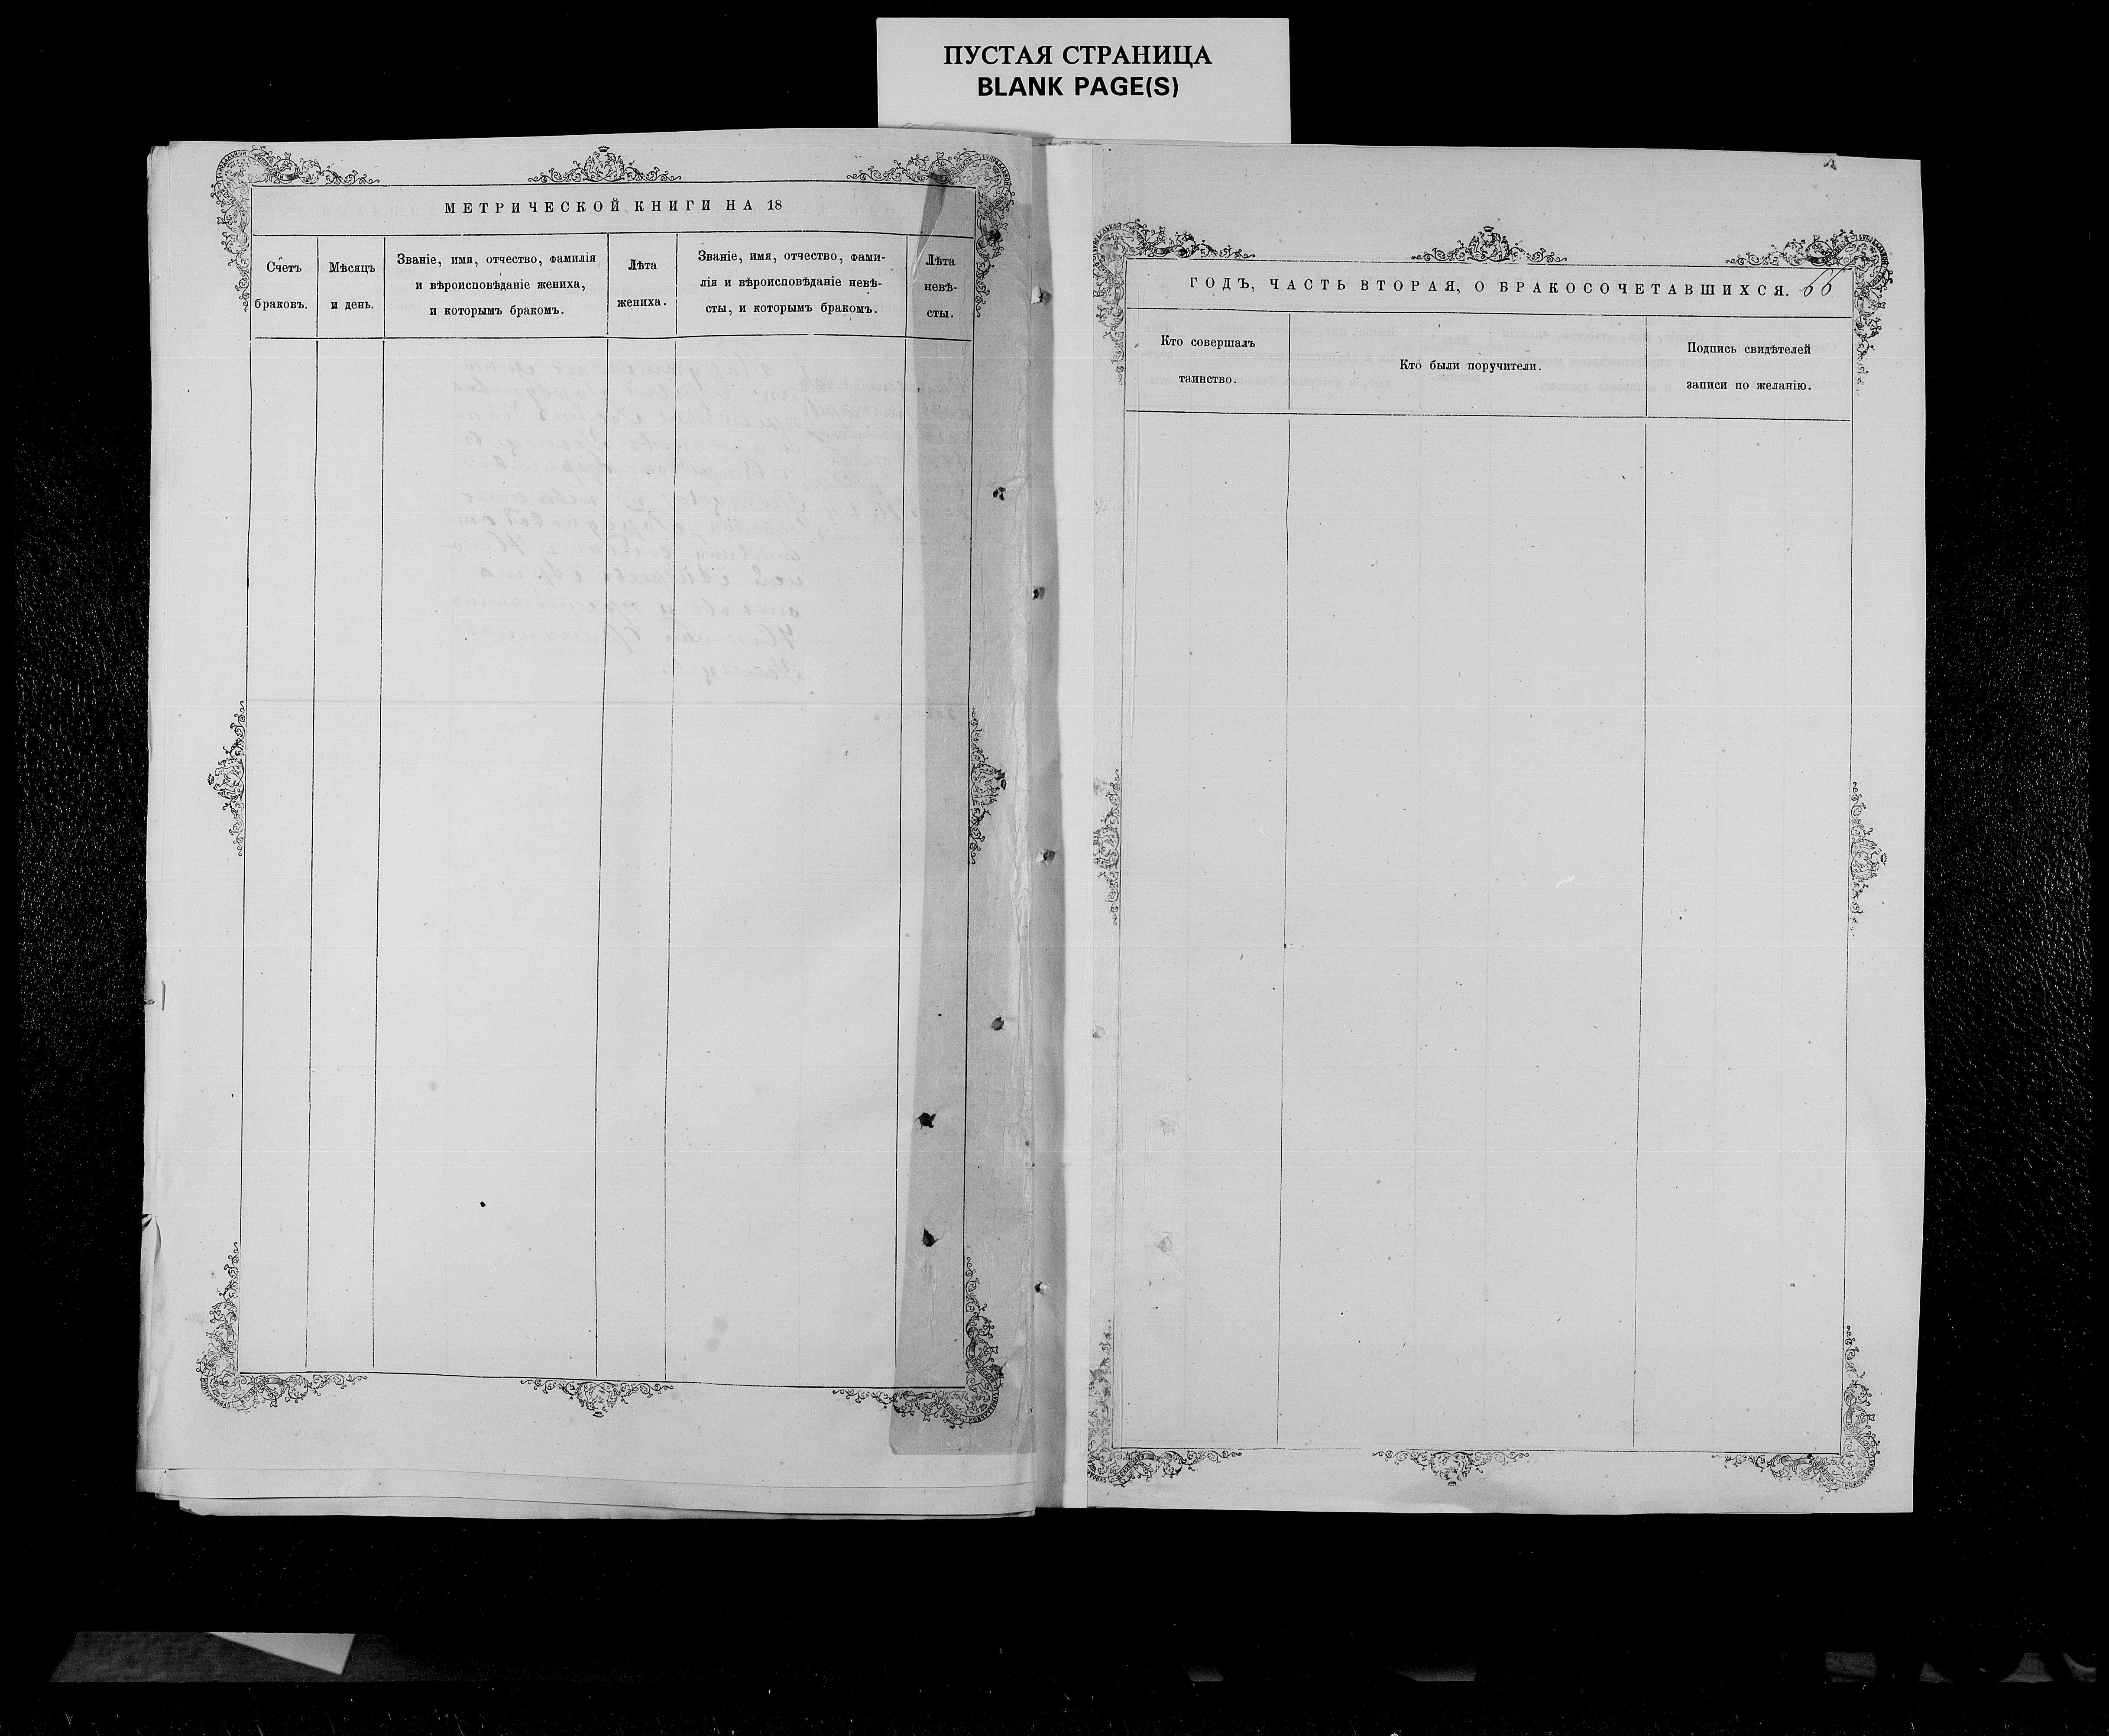 ПУСТАЯ СТРАНИЦА
BLANK PAGE(S)
МЕТРИЧЕСКОЙ КНИГИ НА 18
Счетъ
браковъ.
Мѣсяцъ
и день.
Званіе, имя, отчество, фамилія
и вѣроисповѣданіе жениха,
и которымъ бракомъ.
Лѣта
жениха.
Званіе, имя, отчество, фами-
лія и вѣроисповѣданіе невѣ-
сты, и которымъ бракомъ.
Лѣта
невѣ-
сты.
ГОДЪ, ЧАСТЬ ВТОРАЯ, О БРАКОСОЧЕТАВШИХСЯ. 66
Кто совершалъ
таинство.
Кто были поручители.
Подпись свидѣтелей
записи по желанію.